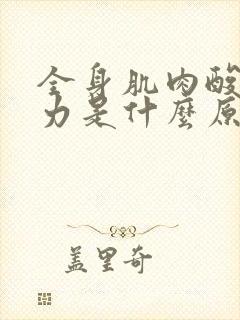 全身肌肉酸
力是什麼原
盖里奇